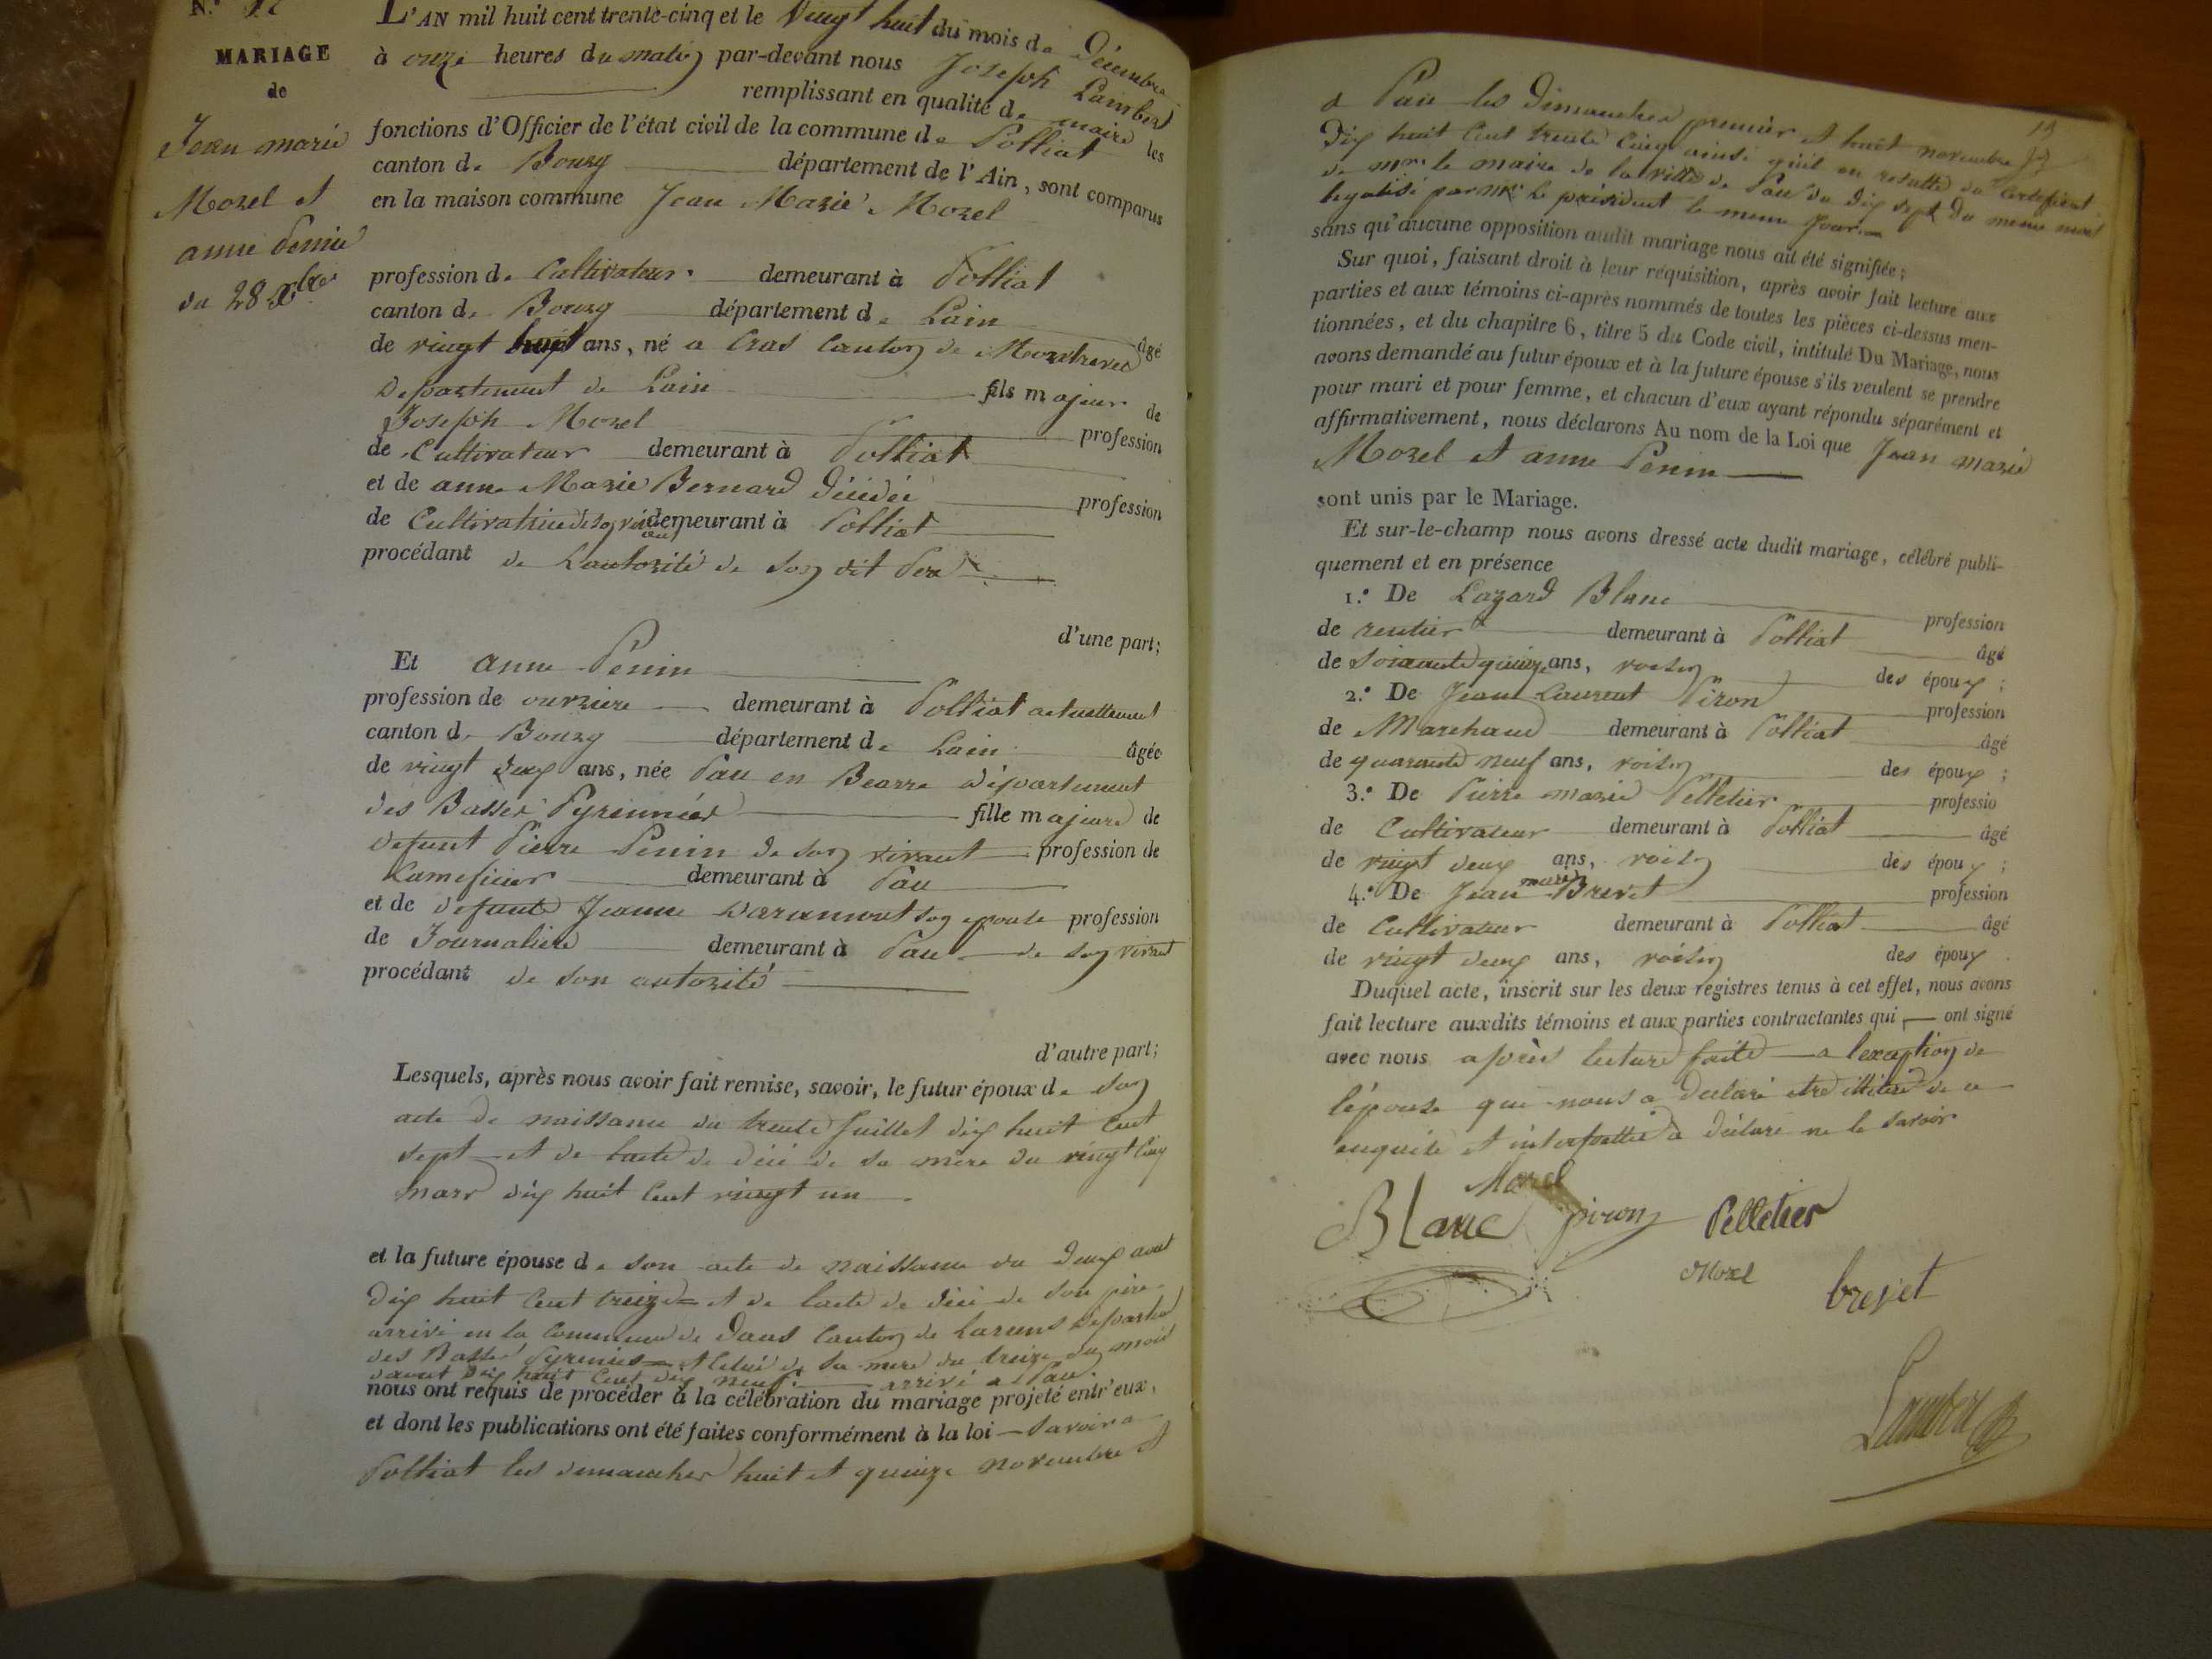 N.º
MARIAGE
de
Jean marie
Morel et
anne Penin
du 28 Xbre
L'AN mil huit cent trente-cinq et le Vingt huit du mois de Décembre
à onze heures du matin par-devant nous Joseph Lambert
remplissant en qualité de maire les
fonctions d'Officier de l'état civil de la commune de Polliat
canton de Bourg département de l'Ain, sont comparus
en la maison commune Jean Marie Morel
profession de Cultivateur demeurant à Polliat
canton de Bourg département de Lain âgé
de vingt huit ans, né a Cras Canton de Montrevel
departement de Lain fils majeur de
Joseph Morel profession
de Cultivateur demeurant à Polliat
et de anne Marie Bernard décédée profession
de Cultivatrice de son vivant demeurant à Polliat
procédant de Lautorité de son dit Pere
d'une part;
Et anne Penin
profession de ouvriere demeurant à Polliat actuellement
canton de Bourg département de Lain âgée
de vingt deux ans, née Pau en Bearn département
des Basses Pyrennées fille majeure de
defunt Pierre Penin de son vivant profession de
demeurant à Pau
et de defunte Jeanne son epouse profession
de Journaliere demeurant à Pau de son vivant
procédant de son autorité
d'autre part;
Lesquels, après nous avoir fait remise, savoir, le futur époux de son
acte de naissance du trente Juillet dix huit Cent
sept et de lacte de déce de sa mere du vingt Cinq
mars dix huit Cent vingt un
et la future épouse de son acte de naissance du deux aout
dix huit Cent treize et de lacte de déce de son pere
arrivé en la Commune de Canton de Laruns départent
des Basses Pyrenées et Celui de sa mere du treize du mois
daout dix huit Cent dix neuf arrivé a Pau.
nous ont requis de procéder à la célébration du mariage projeté entr'eux,
et dont les publications ont été faites conformément à la loi Savoir a
Polliat les dimanches huit et quinze novembre et
13
a Pau les dimanches premier et huit novembre
dix huit Cent trente Cinq ainsi quil en resulte du Certificat
de Mr le maire de la ville de Pau du dix sept du meme mois
legalisé par Mr Le président le meme jour
sans qu'aucune opposition audit mariage nous ait été signifiée;
Sur quoi, faisant droit à leur réquisition, après avoir fait lecture aux
parties et aux témoins ci-après nommés de toutes les pièces ci-dessus men-
tionnées, et du chapitre 6, titre 5 du Code civil, intitulé Du Mariage, nous
avons demandé au futur époux et à la future épouse s'ils veulent se prendre
pour mari et pour femme, et chacun d'eux ayant répondu séparément et
affirmativement, nous déclarons Au nom de la Loi que Jean marie
Morel et anne Penin
sont unis par le Mariage.
Et sur-le-champ nous avons dressé acte dudit mariage, célébré publi-
quement et en présence
1.º De Lazard Blanc profession
de rentier demeurant à Polliat âgé
de soixante quinze ans, voisin des époux;
2.º De Jean Laurent Piron profession
de Marchand demeurant à Polliat âgé
de quarante neuf ans, voisin des époux;
3.º De Pierre marie Pelletier professio
de Cultivateur demeurant à Polliat âgé
de vingt deux ans, voisin des époux;
4.º De Jean marie Brevet profession
de Cultivateur demeurant à Polliat âgé
de vingt deux ans, voisin des époux.
Duquel acte, inscrit sur les deux registres tenus à cet effet, nous avons
fait lecture auxdits témoins et aux parties contractantes qui ont signé
avec nous après lecture faite a lexaption de
lépouse qui nous a declaré etre illitéré de ce
enquise et interpallée a déclaré ne le savoir
Morel
Blanc piron Pelletier
Morel
brevet
Lambert